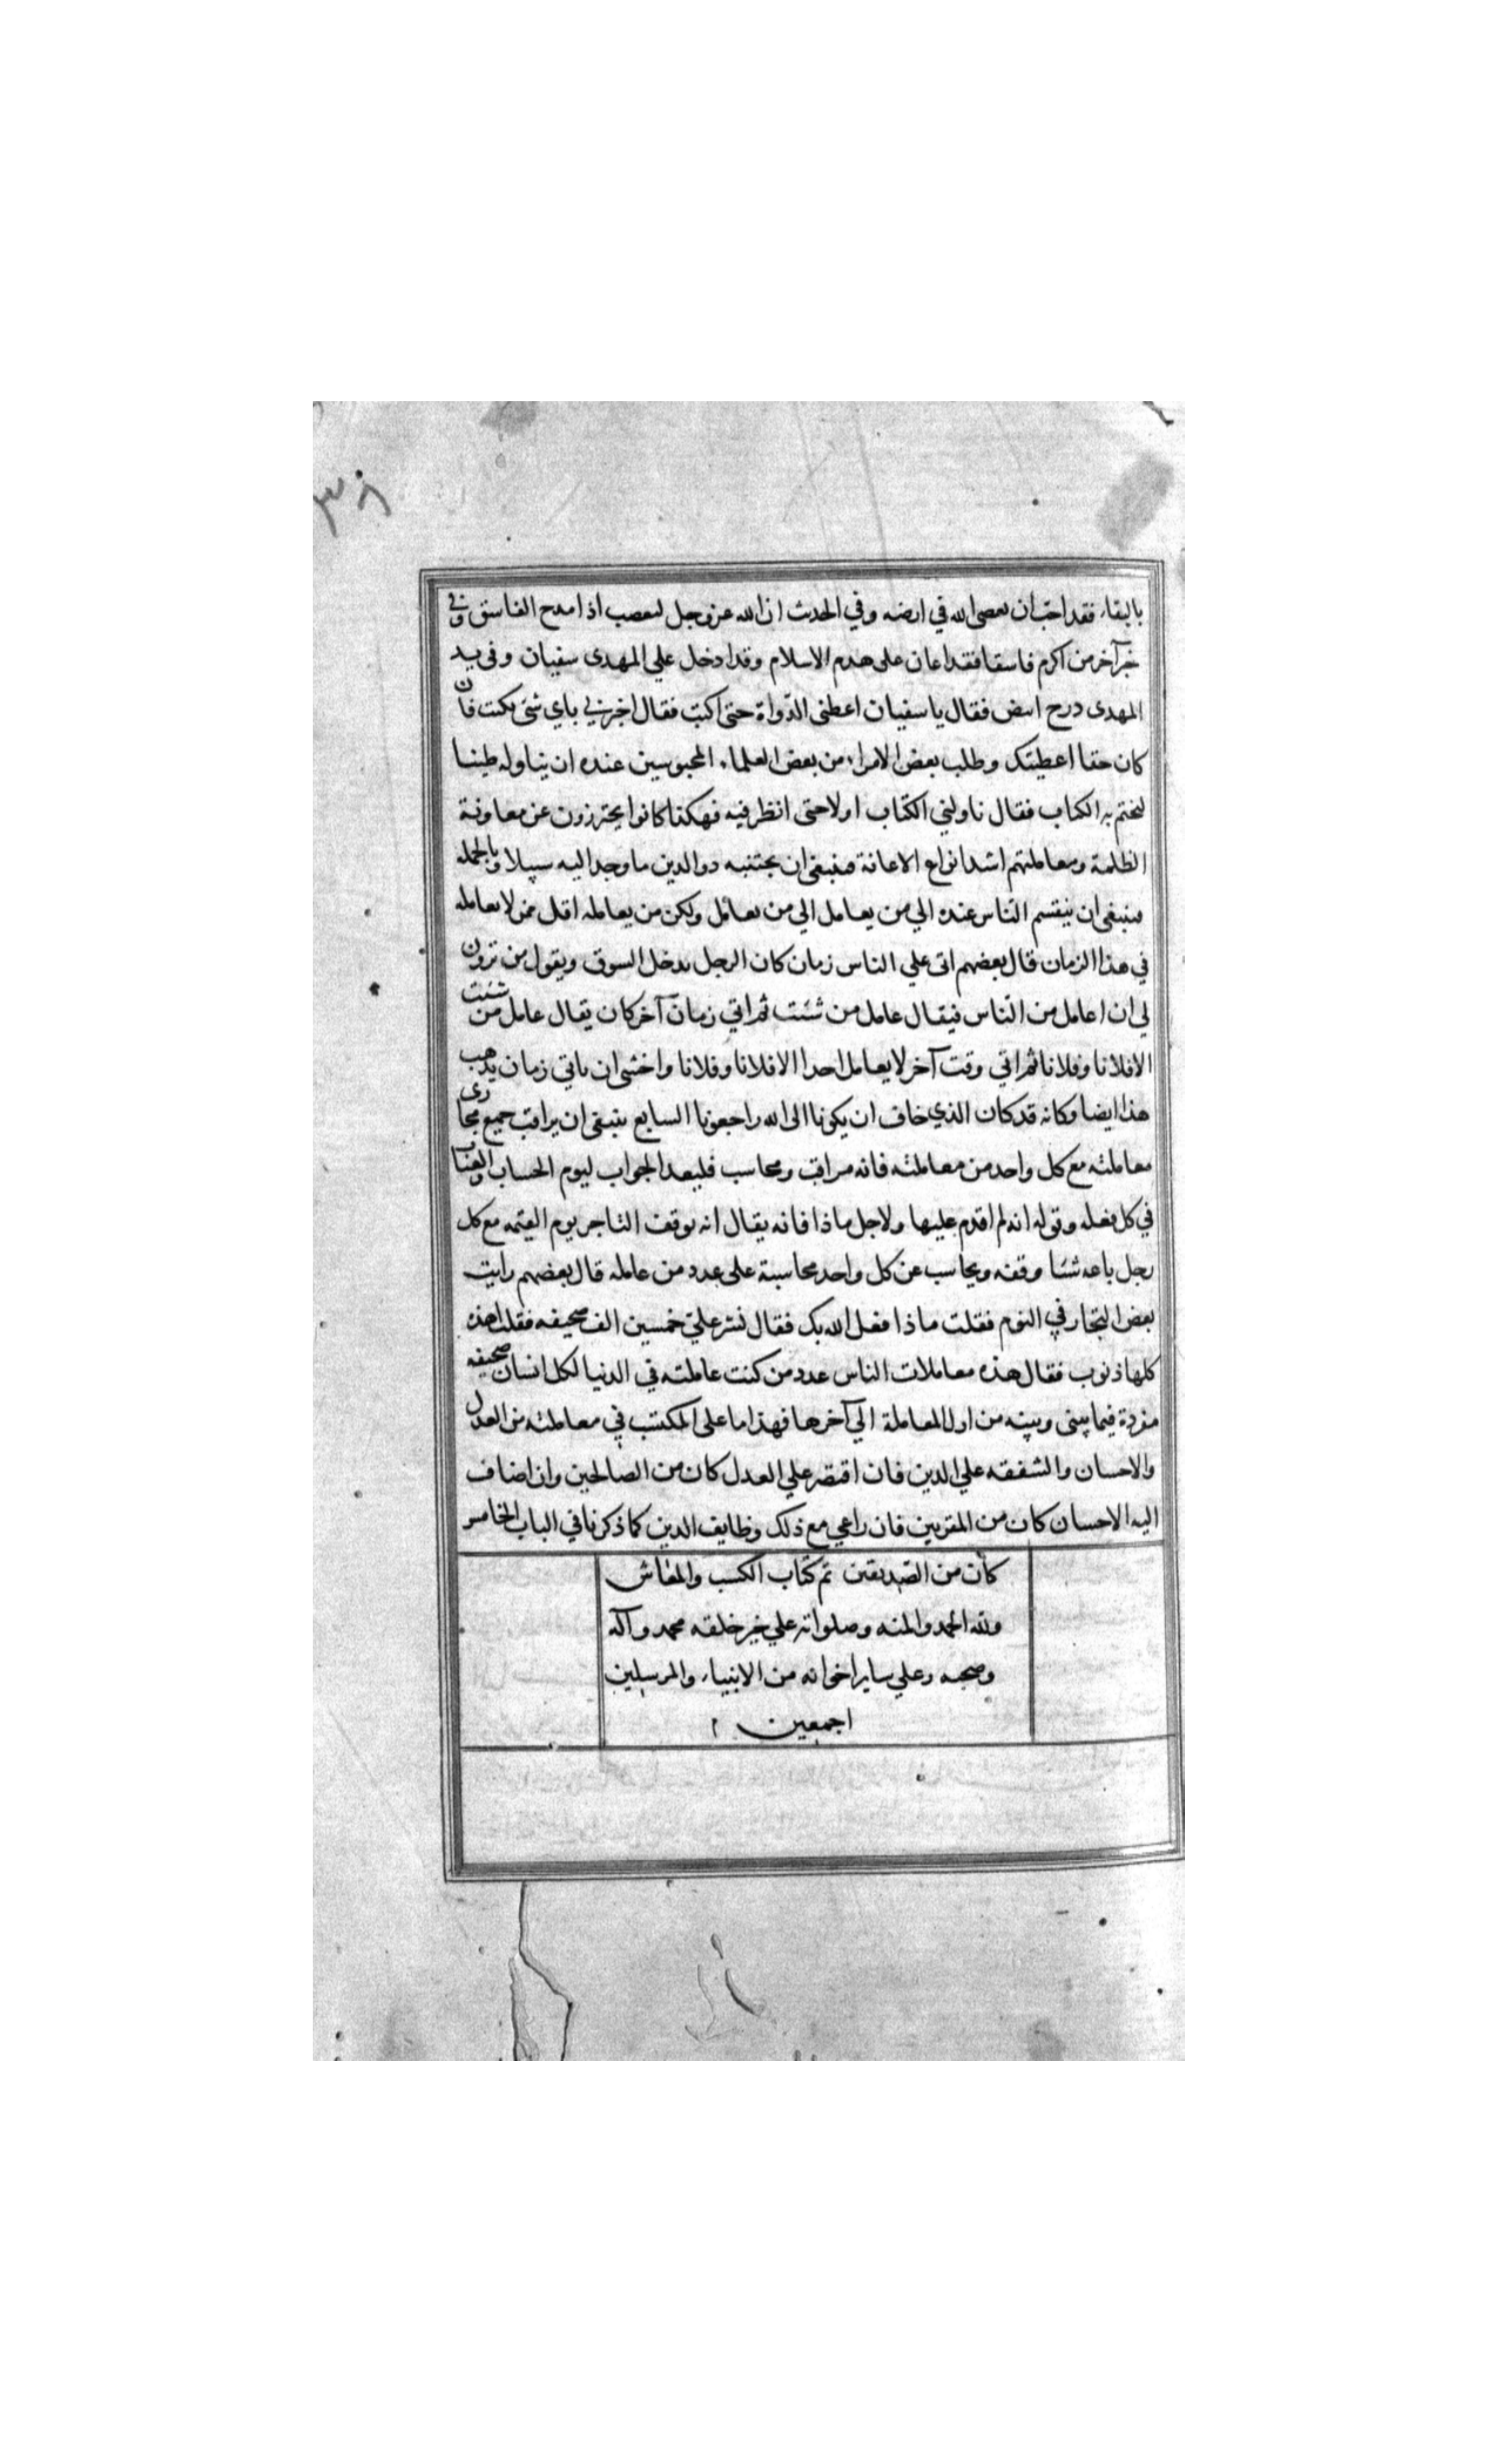 ٣٨
بالبقاء فقد احب ان يعصي الله في ارضه وفي الحديث ان الله عز وجل ليغضب اذا مدح الفاسق وفي
خبر آخر من اكرم فاسقا فقد اعان على هدم الاسلام وقد دخل علي المهدى سفيان وفى يد
المهدى درج ابيض فقال يا سفيان اعطنى الدّواة حتى اكتب فقال اخبرني باي شئ تكتب فان
كان حقا اعطيتك وطلب بعض الامراء من بعض العلماء المحبوسين عنده ان يناوله طينا
ليختم به الكتاب فقال ناولني الكتاب اولا حتى انظر فيه فهكذا كانوا يحترزون عن معاونة
الظلمة ومعاملتهم اشد انواع الاعانة فينبغى ان يجتنبه ذو الدين ما وجد اليه سبيلا وبالجملة
ينبغى ان ينقسم الناس عنده الي من يعامل الي من يعامل ولكن من يعامله اقل ممن لا يعامله
في هذا الزمان قال بعضهم اتى علي الناس زمان كان الرجل يدخل السوق ويقول من ترون
لي ان اعامل من الناس فيقال عامل من شئت ثم اتي زمان آخر كان يقال عامل من شئت
الا فلانا وفلانا ثم اتي وقت آخر لا يعامل احدا الا فلانا وفلانا واخشى ان ياتي زمان يذهب
هذا ايضا وكانه قد كان الذي خاف ان يكون انا الى الله راجعونا السابع ينبغى ان يراقب جميع مجارى
معاملته مع كل واحد من معاملته فانه مراقب ومحاسب فليعد الجواب ليوم الحساب والعقاب
في كل فعله وقوله انه لم اقدم عليها ولاجل ماذا فانه يقال انه يوقف التاجر يوم القيمه مع كل
رجل باعه شئا وقفه ويحاسب عن كل واحد محاسبة على عدد من عامله قال بعضهم رايت
بعض التجار في النوم فقلت ماذا فعل الله بك فقال نشر علي خمسين الف صحيفه فقلت اهذه
كلها ذنوب فقال هذه معاملات الناس عدد من كنت عاملته في الدنيا لكل انسان صحيفه
مفردة فيما بينى وبينه من اول المعاملة الي آخرها فهذا ما على المكتسب في معاملته من العدل
والاحسان والشفقه علي الدين فان اقتصر علي العدل كان من الصالحين وان اضاف
اليه الاحسان كان من المقربين فان راعي مع ذلك وظايف الدين كما ذكرنا في الباب الخامس
كان من الصديقين تم كتاب الكسب والمعاش
ولله الحمد والمنه وصلواته علي خير خلقه محمد وآله
وصحبه وعلي ساير اخوانه من الانبياء والمرسلين
اجمعين